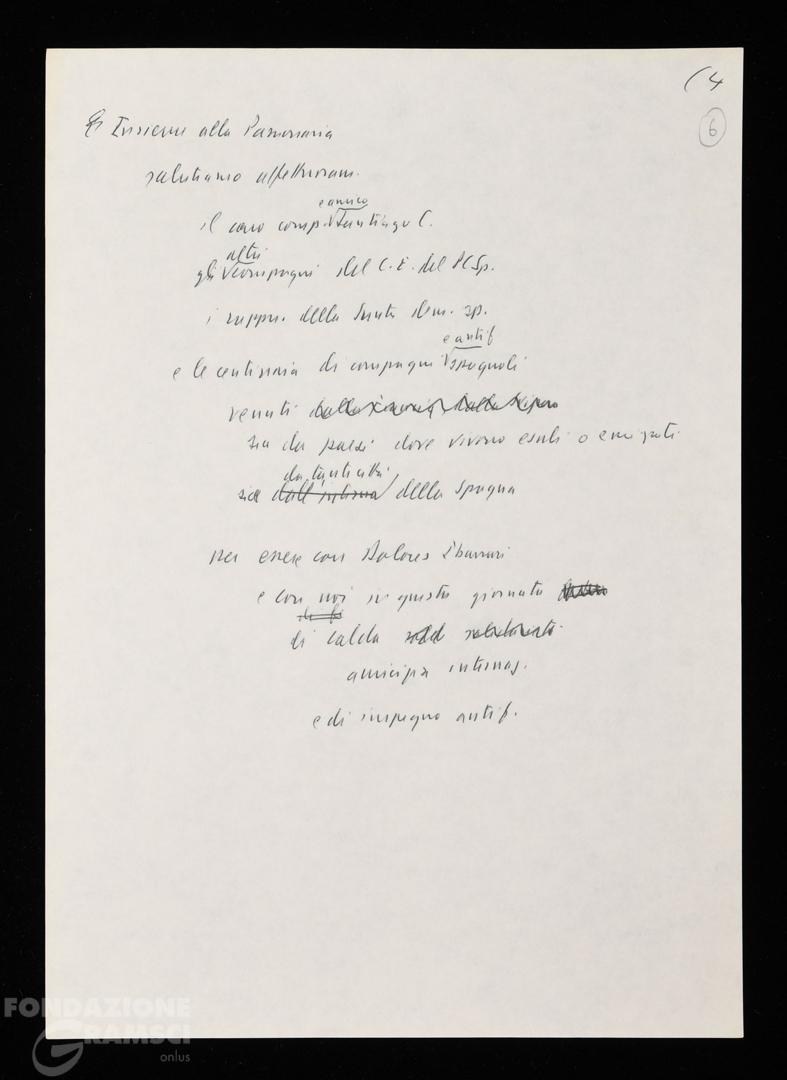 (4
6
Insieme alla Pasionaria
salutiamo affettuosam.
e amico
il caro comp. Santiago C.
altri
gli compagni del C.E. del PCSp.
i rappr. della Giunta dem. sp.
e antif
e le centinaia di compagni spagnoli
venuti
sia da paesi dove vivono esuli o emigrati
da tante città
sia dall'interno della Spagna
per essere con Dolores Ibarruri
e con noi in questa giornata
di calda
amicizia internaz.
e di impegno antif.
FONDAZIONE
GRAMSCI
onlus